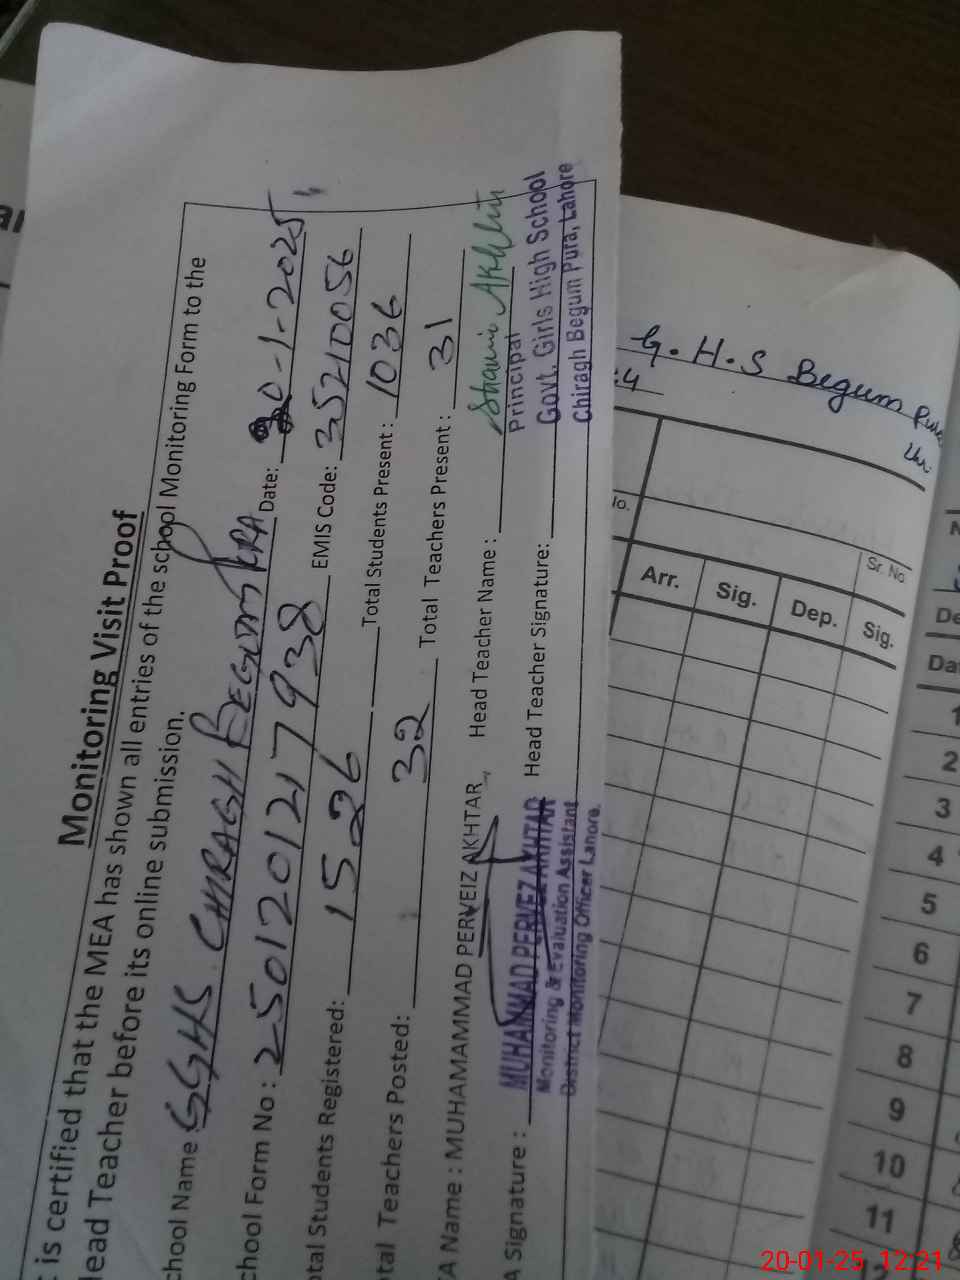 Monitoring Visit Proof
is certified that the MEA has shown all entries of the school Monitoring Form to the
lead Teacher before its online submission.
chool Name GGHS. CHIRAGH BEGUM PRA Date: 20-1-2025
chool Form No: 2501201217938 EMIS Code: 35210056
otal Students Registered: 1526 Total Students Present: 1036
otal Teachers Posted: 32 Total Teachers Present: 31
A Name : MUHAMAMMAD PERVEIZ AKHTAR Head Teacher Name : Shami AKhtar
A Signature : Head Teacher Signature:
MUHAMMAD PERVEZ AKHTAR
Monitoring & Evaluation Assistant
District Monitoring Officer Lahore.
Principal
Govt. Girls High School
Chiragh Begum Pura, Lahore
G.H.S Begum Pura
Lhr.
:4
lo.
Sr. No.
Arr. Sig. Dep. Sig.
N
De
Da
1
2
3
4
5
6
7
8
9
10
11
20-01-25 12:21